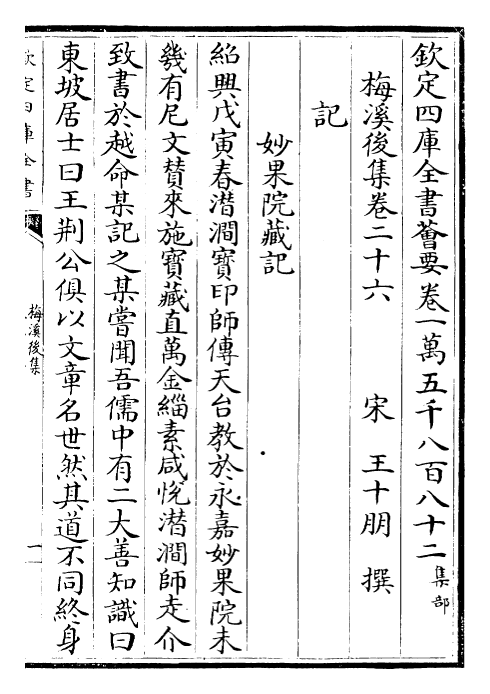 欽定四庫全書薈要卷一萬五千八百八十二集部
梅溪後集卷二十六　宋　王十朋　撰
記
妙果院藏記
紹興戊寅春潛澗寶印師傳天台教於永嘉妙果院未
幾有尼文賛來施寶藏直萬金緇素咸恱潛澗師走介
致書於越命某記之某嘗聞吾儒中有二大善知識曰
東坡居士曰王荆公俱以文章名世然其道不同終身
欽定四庫全書
梅溪後集
一